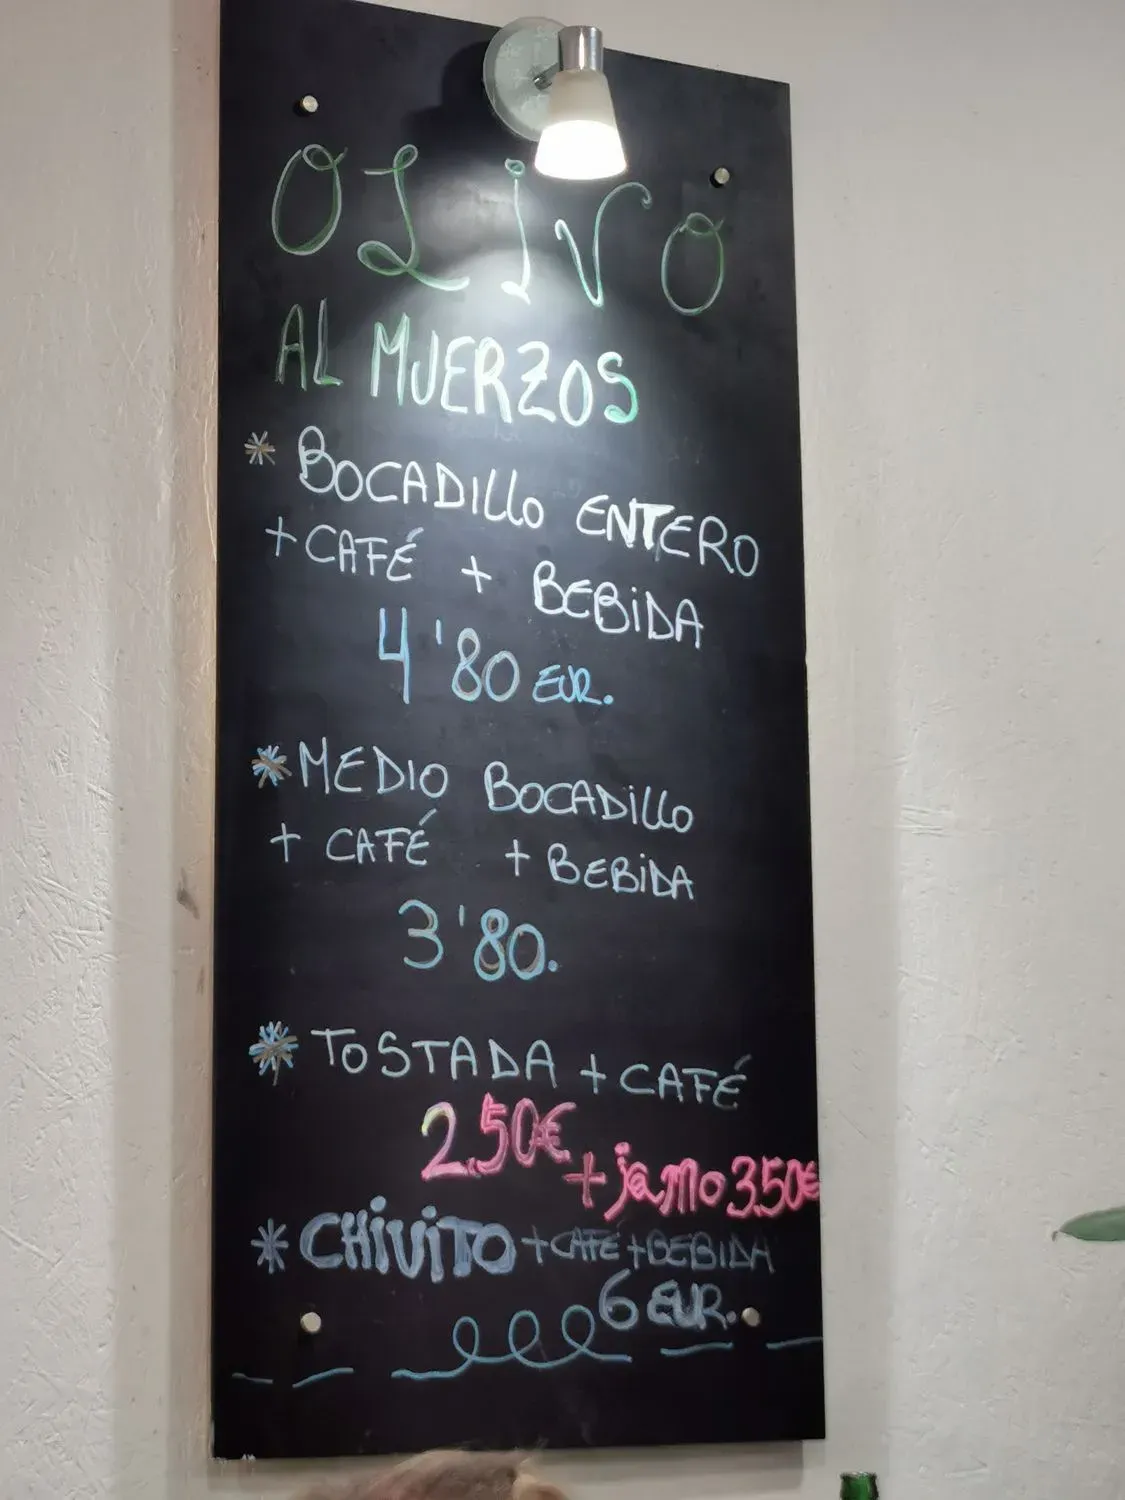 OLIVO
ALMUERZOS
* BOCADILLO ENTERO
+ CAFÉ + BEBIDA
4'80 EUR.
* MEDIO BOCADILLO
+ CAFÉ + BEBIDA
3'80.
* TOSTADA + CAFÉ
2.50€
+ jamo 3.50€
* CHIVITO + CAFÉ + BEBIDA
6 EUR.